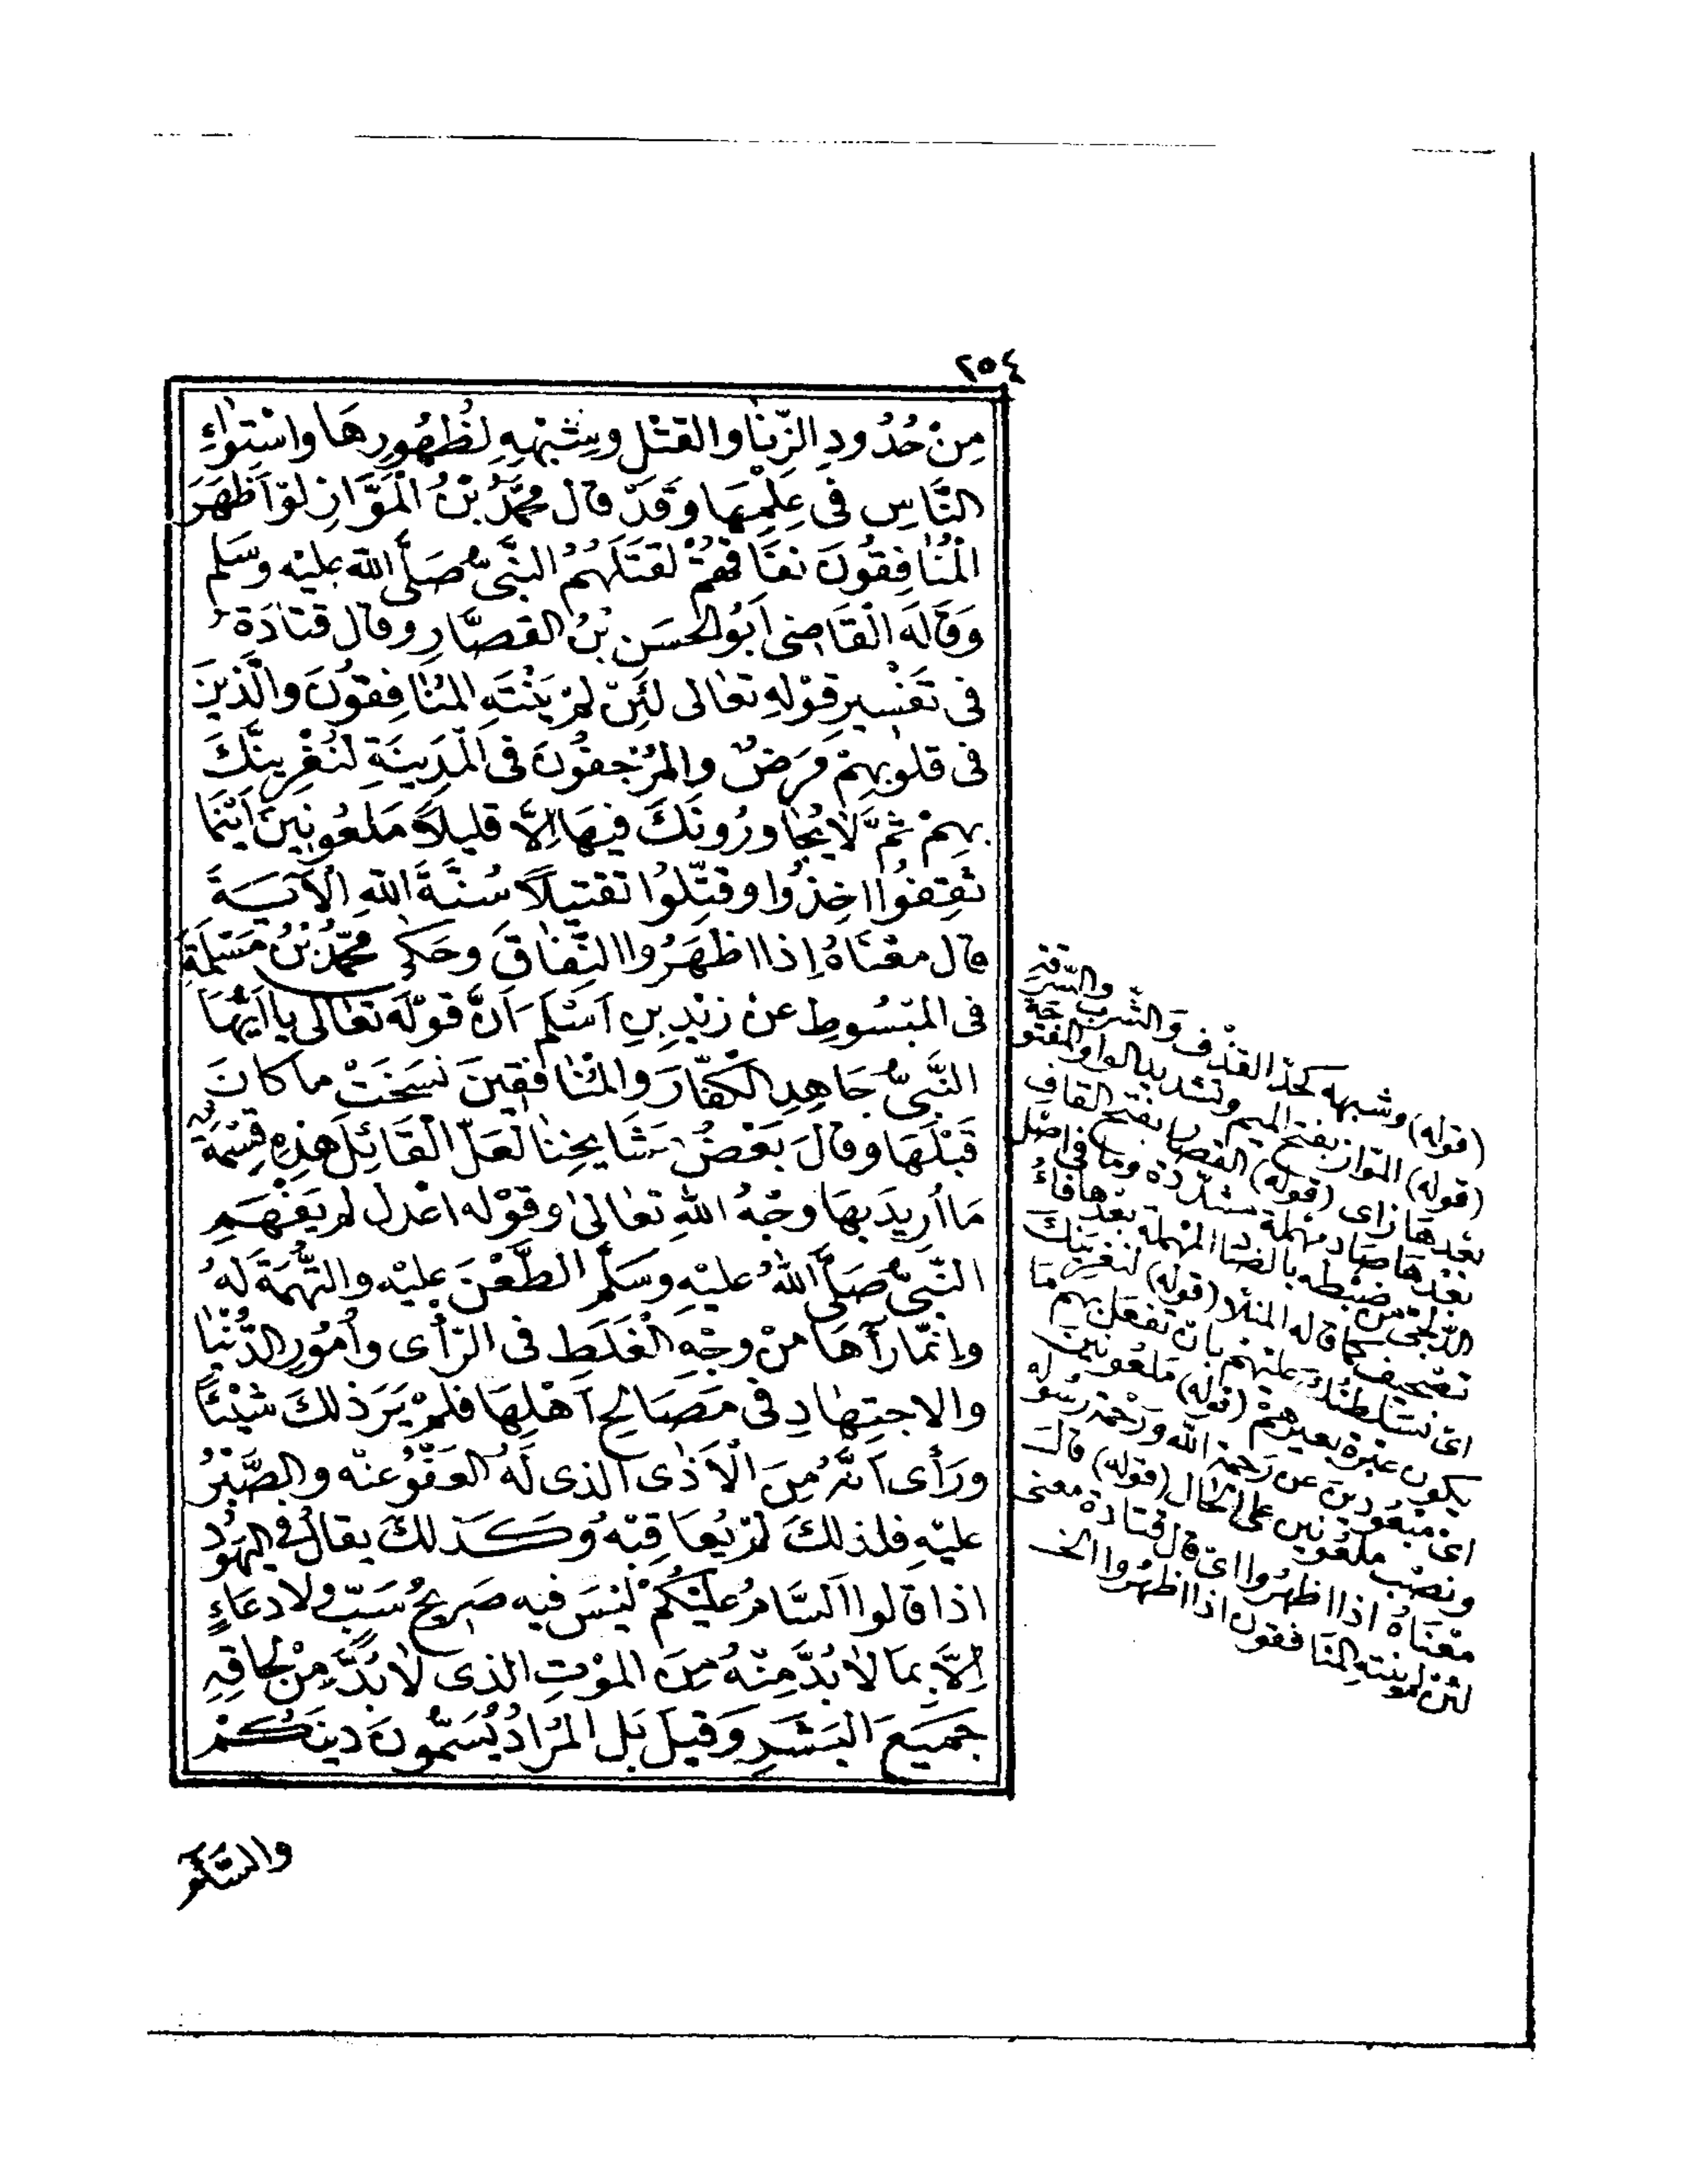 ٢٥٤
مِنْ حُدُودِ الزِّنَا وَالقَتْلِ وَشِبْهِهِ لِظُهُورِهَا وَاسْتِوَاءِ
النَّاسِ فِى عِلْمِهَا وَقَدْ قَالَ مُحَمَّدُ بْنُ الْمَوَّازِ لَوْ اَظْهَرَ
الْمُنَافِقُونَ نِفَاقَهُمْ لَقَتَلَهُمُ النَّبِىُّ صَلَّى اللهُ عَلَيْهِ وَسَلَّمَ
وَقَالَهُ الْقَاضِى اَبُو الْحَسَنِ بْنُ القَصَّارِ وَقَالَ قَتَادَةُ
فِى تَفْسِيرِ قَوْلِهِ تَعَالَى لَئِنْ لَمْ يَنْتَهِ المُنَافِقُونَ وَالَّذِينَ
فِى قُلُوبِهِمْ مَرَضٌ وَالْمُرْجِفُونَ فِى الْمَدِينَةِ لَنُغْرِيَنَّكَ
بِهِمْ ثُمَّ لَا يُجَاوِرُونَكَ فِيهَا اِلَّا قَلِيلاً مَلْعُونِينَ اَيْنَمَا
ثُقِفُوا اُخِذُوا وَقُتِّلُوا تَقْتِيلاً سُنَّةَ اللهِ الْآيَةَ
قَالَ مَعْنَاهُ اِذَا اَظْهَرُوا النِّفَاقَ وَحَكَى مُحَمَّدُ بْنُ مَسْلَمَةَ
فِى المَبْسُوطِ عَنْ زَيْدِ بْنِ اَسْلَمَ اَنَّ قَوْلَهُ تَعَالَى يَا اَيُّهَا
النَّبِىُّ جَاهِدِ الْكُفَّارَ وَالْمُنَافِقِينَ نَسَخَتْ مَا كَانَ
قَبْلَهَا وَقَالَ بَعْضُ مَشَايِخِنَا لَعَلَّ الْقَائِلَ هَذِهِ قِسْمَةٌ
مَا اُرِيدَ بِهَا وَجْهُ اللهِ تَعَالَى وَقَوْلَهُ اعْدِلْ لَمْ يَفْهَمِ
النَّبِىُّ صَلَّى اللهُ عَلَيْهِ وَسَلَّمَ الطَّعْنَ عَلَيْهِ وَالتُّهْمَةَ لَهُ
وَاِنَّمَا رَآهَا مِنْ وَجْهِ الْغَلَطِ فِى الرَّأْىِ وَاُمُورِ الدُّنْيَا
وَالاجْتِهَادِ فِى مَصَالِحِ اَهْلِهَا فَلَمْ يَرَ ذَلِكَ شَيْئًا
وَرَأَى اَنَّهُ مِنَ الْاَذَى الَّذِى لَهُ العَفْوُ عَنْهُ وَالصَّبْرُ
عَلَيْهِ فَلِذَلِكَ لَمْ يُعَاقِبْهُ وَكَذَلِكَ يُقَالُ فِى الْيَهُودِ
اِذَا قَالُوا السَّامُ عَلَيْكُمْ لَيْسَ فِيهِ صَرِيحُ سَبٍّ وَلَا دُعَاءٍ
اِلَّا بِمَا لَا بُدَّ مِنْهُ مِنَ المَوْتِ الَّذِى لَا بُدَّ مِنْ لِحَاقِهِ
جَمِيعَ الْبَشَرِ وَقِيلَ بَلِ الْمُرَادُ يَسْمُونَ دِينَكُمْ
(قوله) وشبهه كحدّ القذف والشرب والسرقة
(قوله) الموّاز بفتح الميم وتشديد الواو المفتوحة
بعدها زاى (قوله) القصار بفتح القاف
بعدها صاد مهملة مشدّدة وما فى اصل
الدلجى من ضبطه بالضاد المهملة بعدها فاء
تصحيف كما قاله المنلا (قوله) لنغرينك
اى نسلطنك عليهم بان تفعل بهم ما
يكون عبرة بغيرهم (قوله) ملعونين
اى مبعودين عن رحمة الله ورحمة رسوله
ونصب ملعونين على الحال (قوله) قال
معناه اذا اظهروا اى قال قتادة معنى
لئن لم ينته المنافقون اذا اظهروا الخ
والسّام